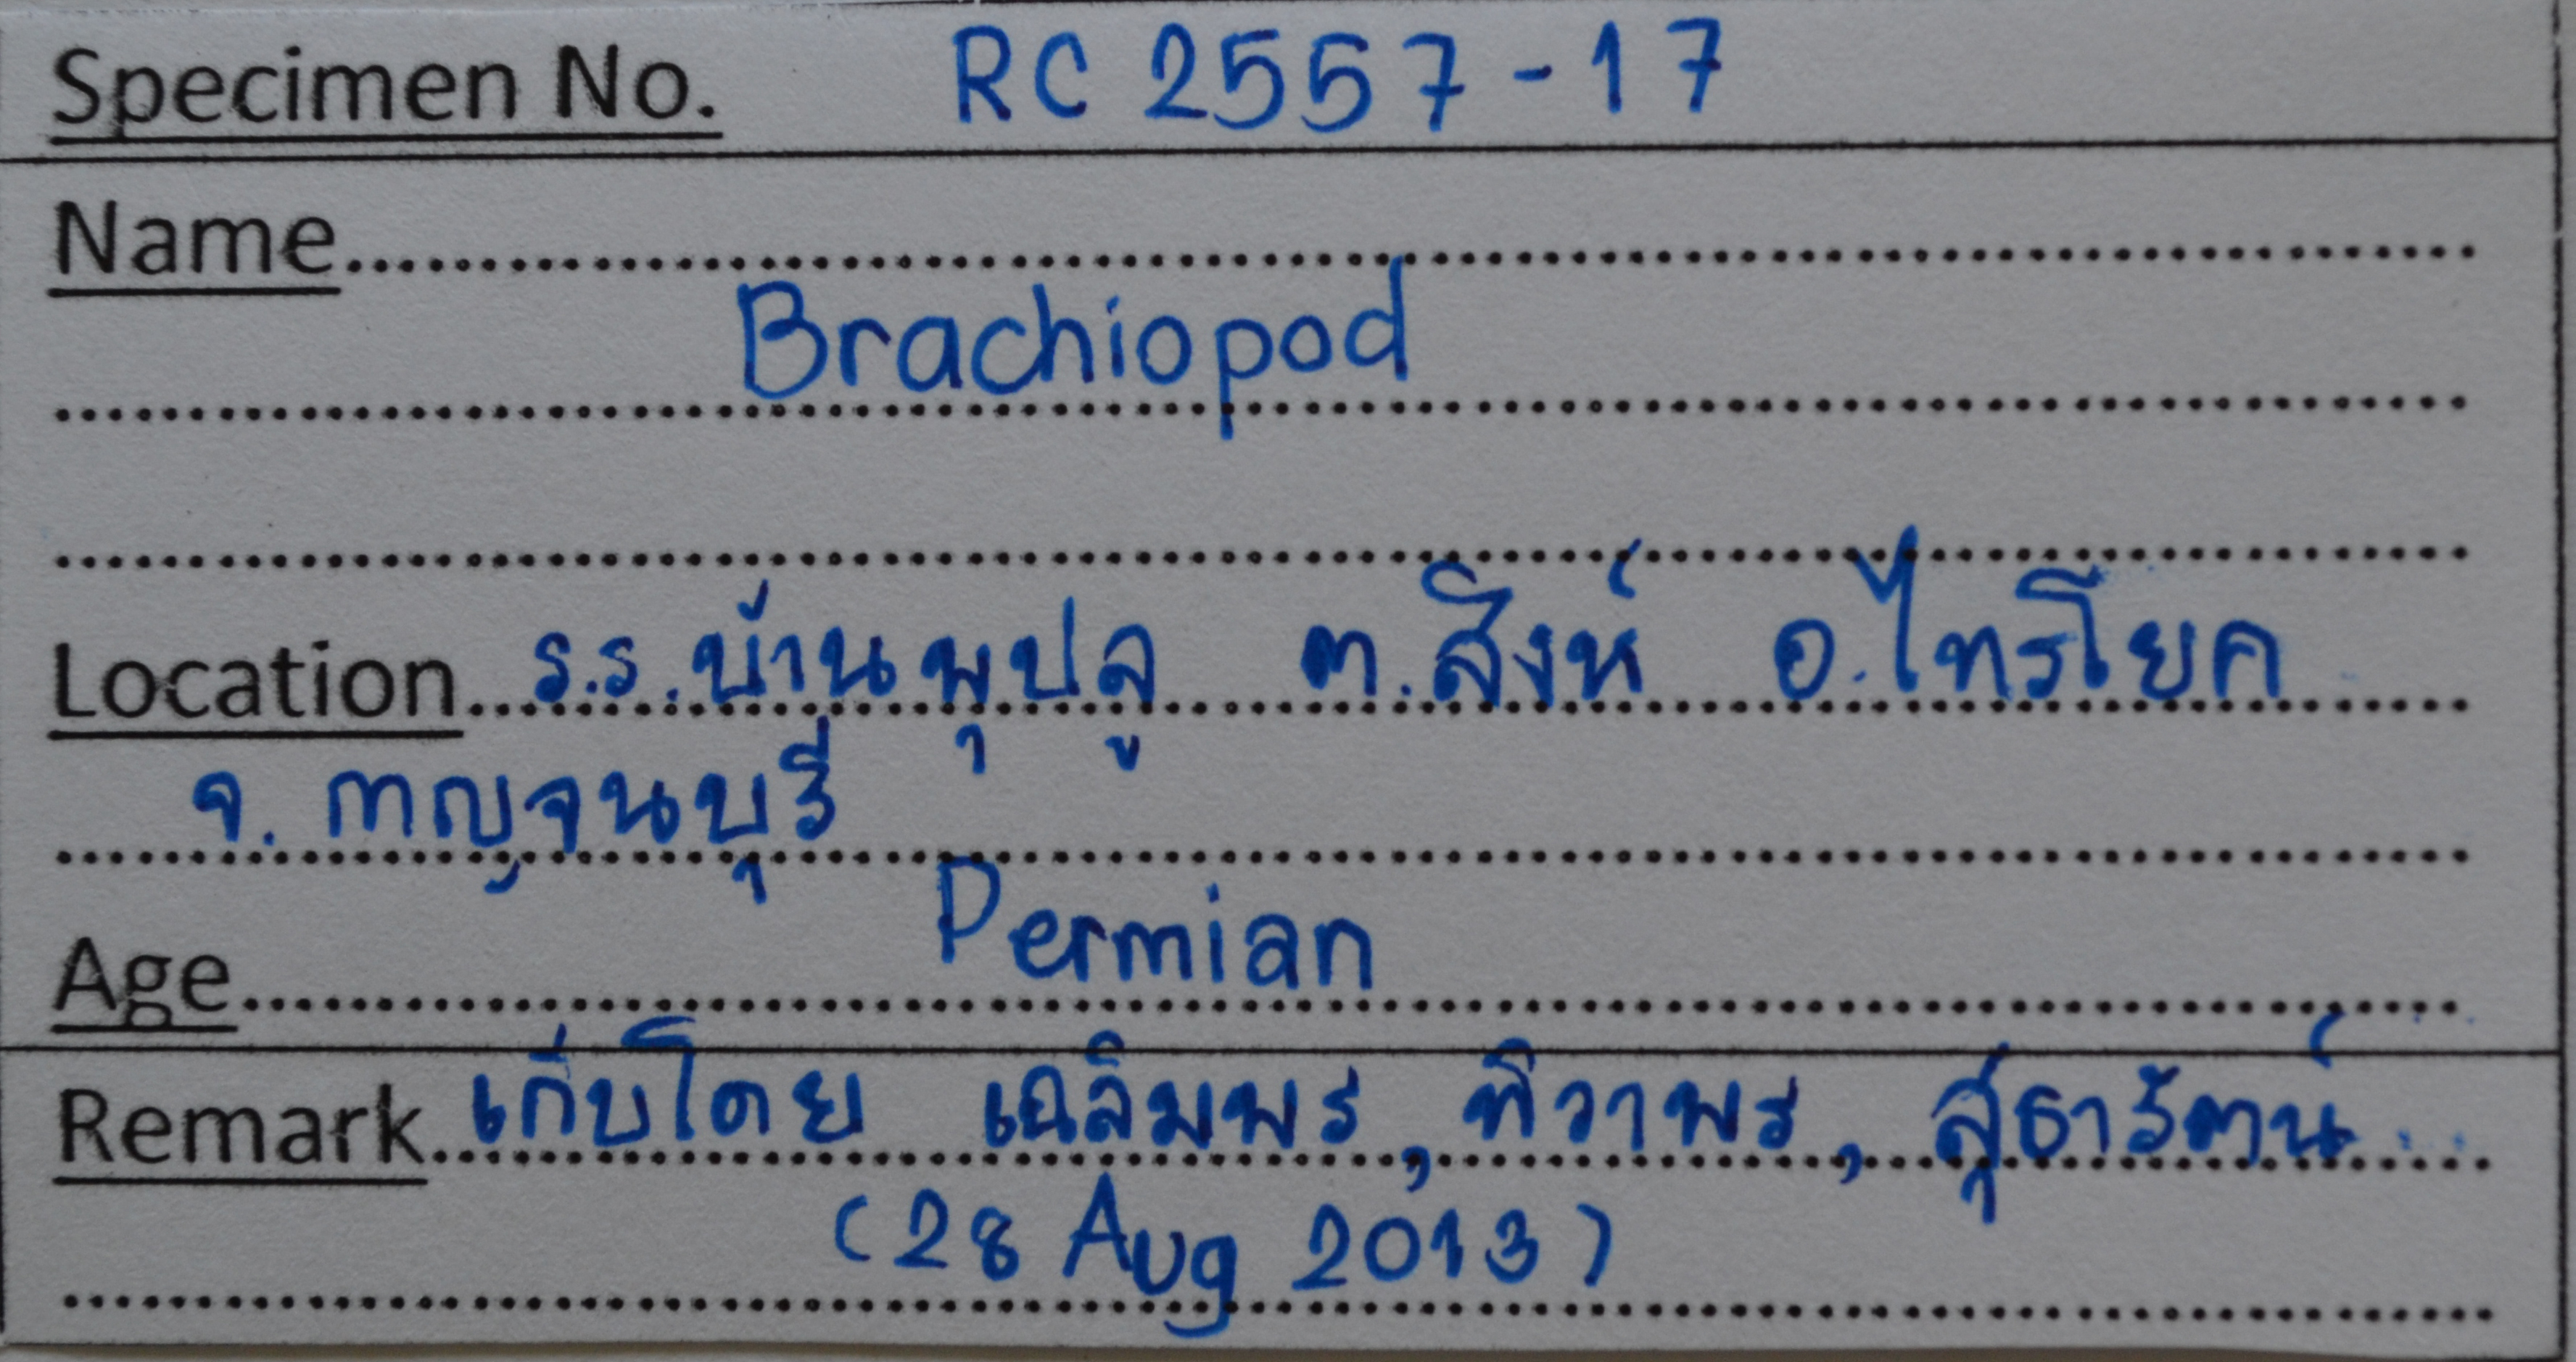 Specimen No. RC 2557-17
Name
Brachiopod
Location ร.ร.บ้านพุปลู ต.สิงห์ อ.ไทรโยค
จ. กาญจนบุรี
Age Permian
Remark เก็บโดย เฉลิมพร, ทิวาพร, สุธารัตน์
(28 Aug 2013)